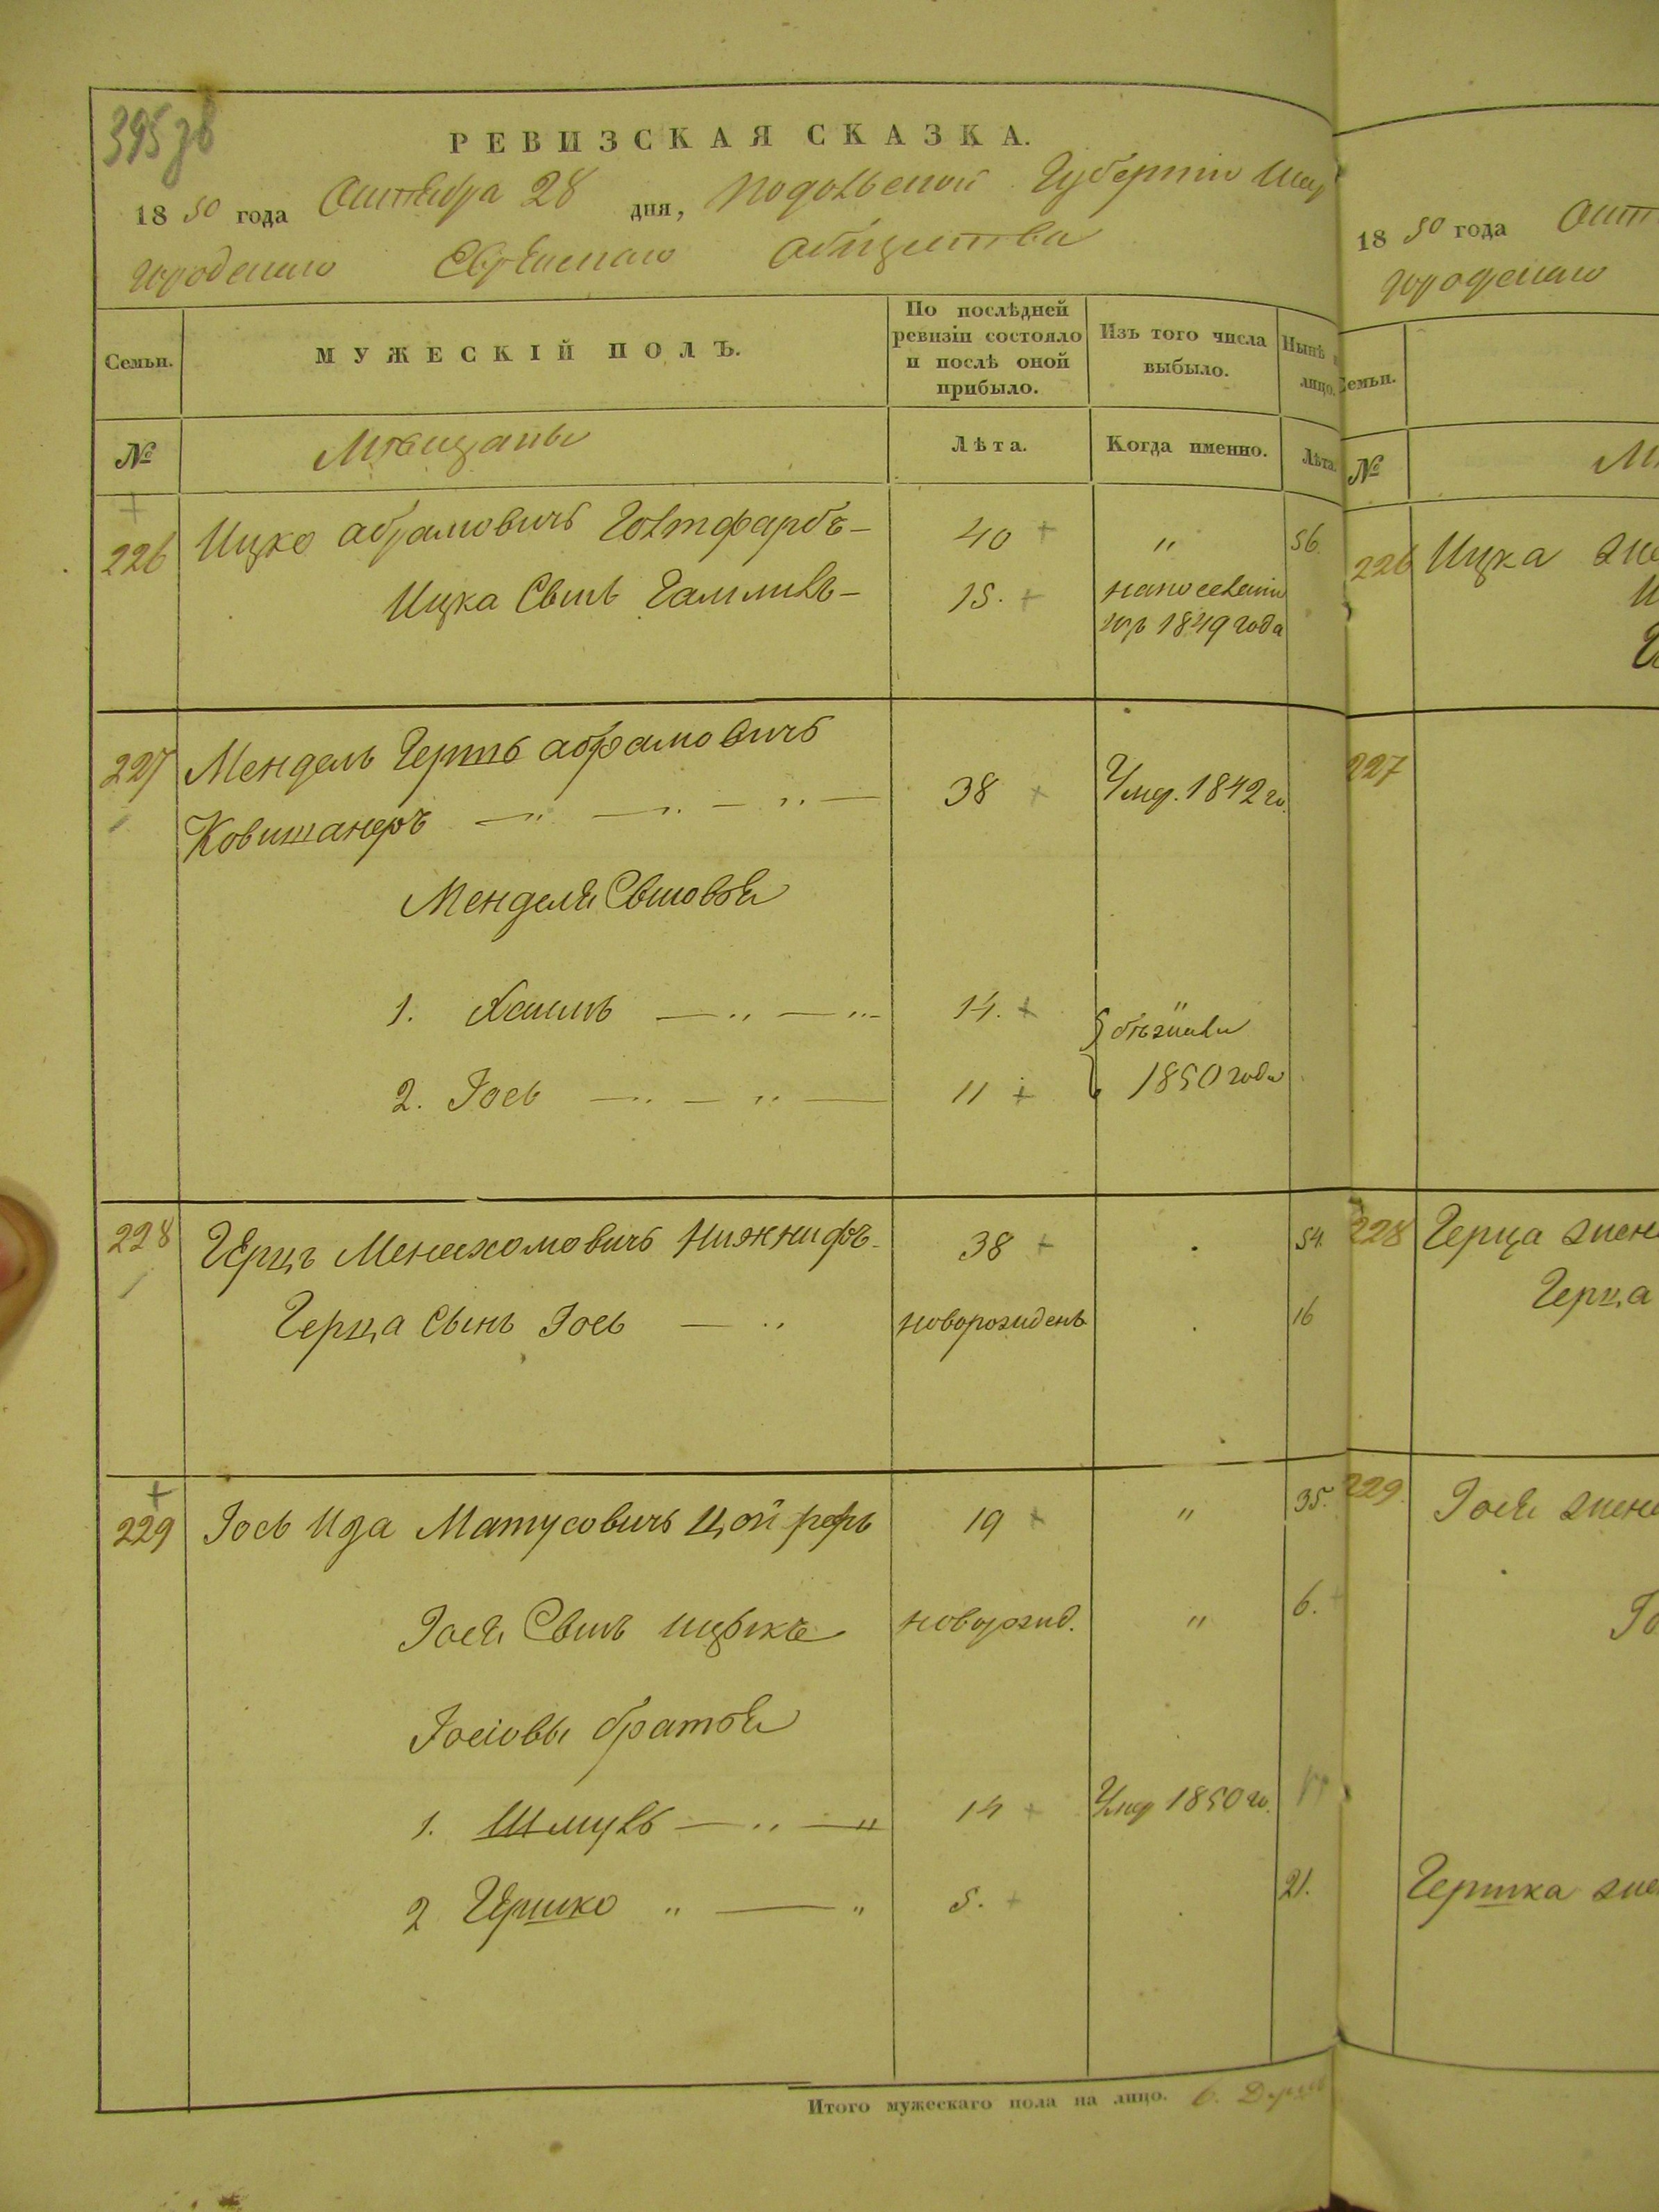 395 зв
РЕВИЗСКАЯ СКАЗКА.
18 50 года Октября 28 дня, Подольской Губерніи Шар
городскаго Еврейскаго Общества
Семьи.
МУЖЕСКІЙ ПОЛЪ.
По послѣдней
ревизіи состояло
и послѣ оной
прибыло.
Изъ того числа
выбыло.
Нынѣ
лицо.
№
Мѣщаны
Лѣта.
Когда именно.
Лѣта.
226 Ицко Абрамовичъ Голтфарбъ 40 " 56.
Ицка Сынъ 15.
1849 года
227 Мендель Гершъ Абрамовичъ
Ковшанеръ 38 Умер. 1842 го.
Менделя Сыновья
1. Хаимъ 14. бѣжали
2. Іось 11 1850 года
228 Герцъ Менахомовичъ Нижнифъ 38 54.
Герца Сынъ Іось новорожденъ 16
229 Іось Ида Матусовичъ Цойреръ 19 " 35.
Іося Сынъ Ицыкъ новорожд. " 6.
Іосіовы братья
1. Шмуль 14 Умер 1850 го.
2 Гершко 5. 21.
Итого мужескаго пола на лицо. 6.
18 50 года Окт
городскаго
Семьи.
№
226 Ицка жен
227
228 Герца жена
Герца
229. Іося жена
Гершка жен